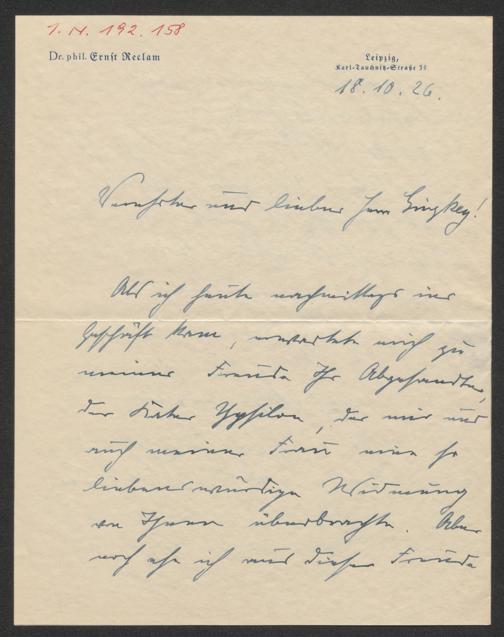 I.N. 192.158
Dr. phil. Ernst Reclam
Leipzig,
Karl-Tauchnitz-Straße
18.10.26.
Verehrter und lieber Herr Ginzkey!
Als ich heute nachmittags ins
Geschäft kam, erwartete mich zu
meiner Freude Ihr Abgesandter,
der Kater Ypsilon, der mir und
auch meiner Frau eine so
liebenswürdige Widmung
von Ihnen überbrachte. Aber
noch ehe ich aus dieser Freude